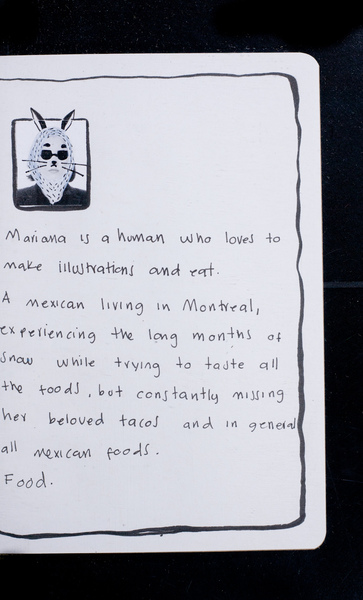 Mariana is a human who loves to
make illustrations and eat.
A mexican living in Montreal,
experiencing the long months of
snow while trying to taste all
the foods, but constantly missing
her beloved tacos and in general
all mexican foods.
Food.